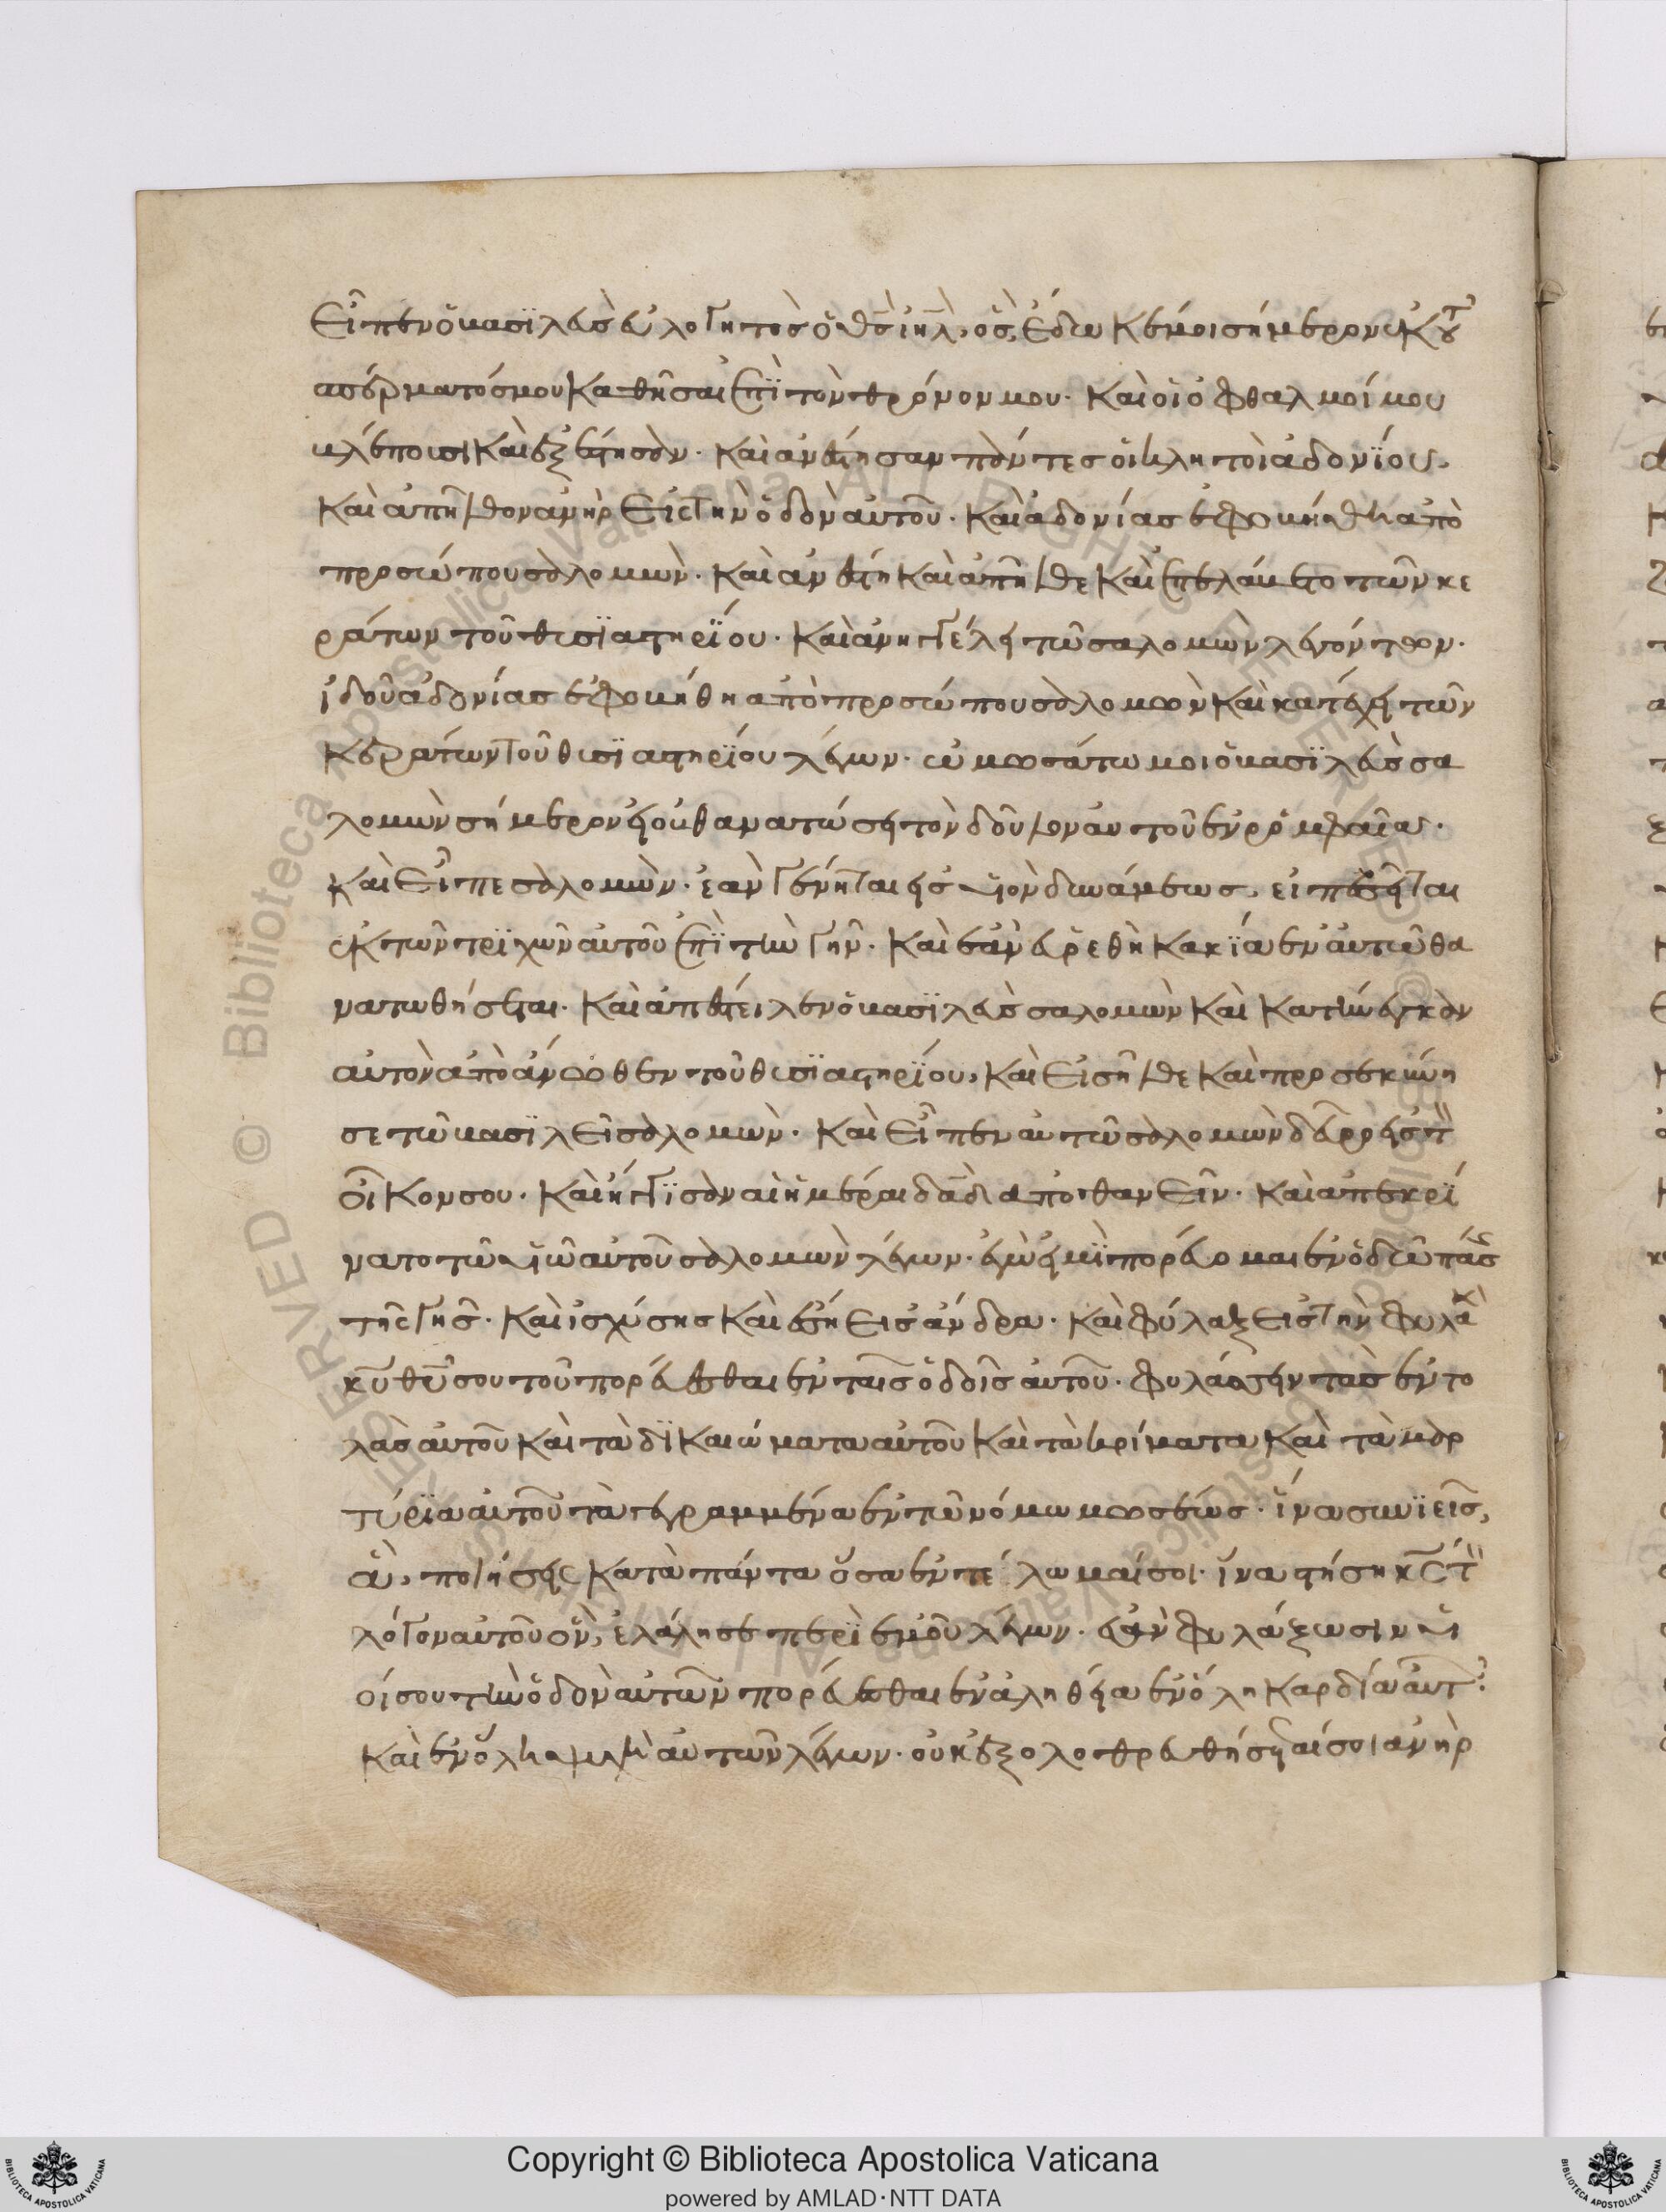 εἶπεν ὁ βασϊλεὺς εὐλογητὸς ὁ θς ἰηλ, ὃς ἔδωκέ μοι σήμερον ἐκ τοῦ
σπέρματός μου καθῆσαι ἐπῒ τὸν θρόνον μου. καὶ οἱ ὀφθαλμοί μου
βλέπουσι καὶ ἐξέστησαν. καὶ ἀνέστησαν πάντες οἱ κλητοὶ ἀδονϊου
καὶ ἀπῆλθον ἀνὴρ εἰς τὴν ὁδὸν αὐτοῦ. καὶ ἀδονίας ἐφοβήθη ἀπὸ
προσώπου σολομών. καὶ ἀνέστη καὶ ἀπῆλθε καὶ ἐπελάβετο τῶν κε
ράτων τοῦ θυσϊαστηρΐου. καὶ ἀνηγγέλη τῶ σαλομὼν λεγόντων.
ἰδοὺ ἀδονίας ἐφοβήθη ἀπὸ προσώπου σολομὼν καὶ κατέχει τῶν
κεράτων τοῦ θυσϊαστηρΐου λέγων. ὀμοσάτω μοι ὁ βασϊλεὺς σα
λομὼν σήμερον εἰ οὐ θανατώσει τὸν δοῦλον αὐτοῦ ἐν ῥομφαία.
καὶ εἶπε σολομών. ἐὰν γένηται εἰς υἱὸν δυνάμεως, εἰ πεσεῖται
ἐκ τῶν τρϊχῶν αὐτοῦ ἐπῒ τὴν γῆν. καὶ ἐὰν εὑρεθῆ κακΐα ἐν αὐτῶ θα
νατωθήσεται. καὶ ἀπέστειλεν ὁ βασϊλεὺς σαλομὼν καὶ κατήνεγκον
αὐτὸν ἀπὸ ἄνωθεν τοῦ θυσϊαστηρΐου, καὶ εἰσῆλθε καὶ προσεκύνη
σε τῶ βασϊλεῖ σολομών. καὶ εἶπεν αὐτῶ σολομὼν δεῦρο εἰς τ
οἶκον σου. καὶ ἤγγϊσαν αἱ ἡμέραι δαδ ἀποθανεῖν. καὶ ἀπεκρί
νατο τῶ υἱῶ αὐτοῦ σολομὼν λέγων. ἐγώ εἰμϊ πορεύομαι ἐν ὁδῶ πάσ
τῆς γῆς. καὶ ἰσχύσης καὶ ἔση εἰς ἄνδρα. καὶ φύλαξεις τὴν φυλακ
κυ θυ σου τοῦ πορεύεσθαι ἐν ταῖς ὁδοῖς αὐτοῦ. φυλάσσειν τὰς ἐντο
λὰς αὐτοῦ καὶ τὰ δϊκαιώματα αὐτοῦ καὶ τὰ κρίματα καὶ τὰ μαρ
τύρϊα αὐτοῦ τὰ γεγραμμένα ἐν τῶ νόμω μωσέως. ἵνα συνϊεῖς,
ἃ, ποιήσεις κατὰ πάντα ὅσα ἐντέλωμαί σοι. ἵνα στήση κς τ
λόγον αὐτοῦ ὃν, ἐλάλησε περῒ ἐμοῦ λέγων. ἐὰν φυλάξωσιν υἱ
οί σου τὴν ὁδὸν αὐτῶν πορεύεσθαι ἐν ἀληθεία ἐν ὅλη καρδία αὐτ
καὶ ἐν ὅλη ψυχῆ αὐτῶν λέγων. οὐκ ἐξολοθρευθήσεταί σοι ἀνὴρ
Copyright © Biblioteca Apostolica Vaticana
powered by AMLAD·NTT DATA